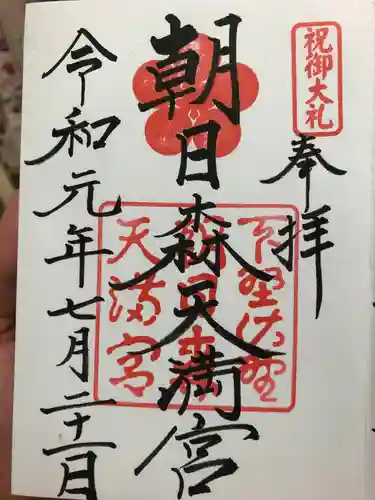 祝御大礼
奉拝
朝日森天満宮
下野佐野
朝日森
天満宮
令和元年七月二十一日